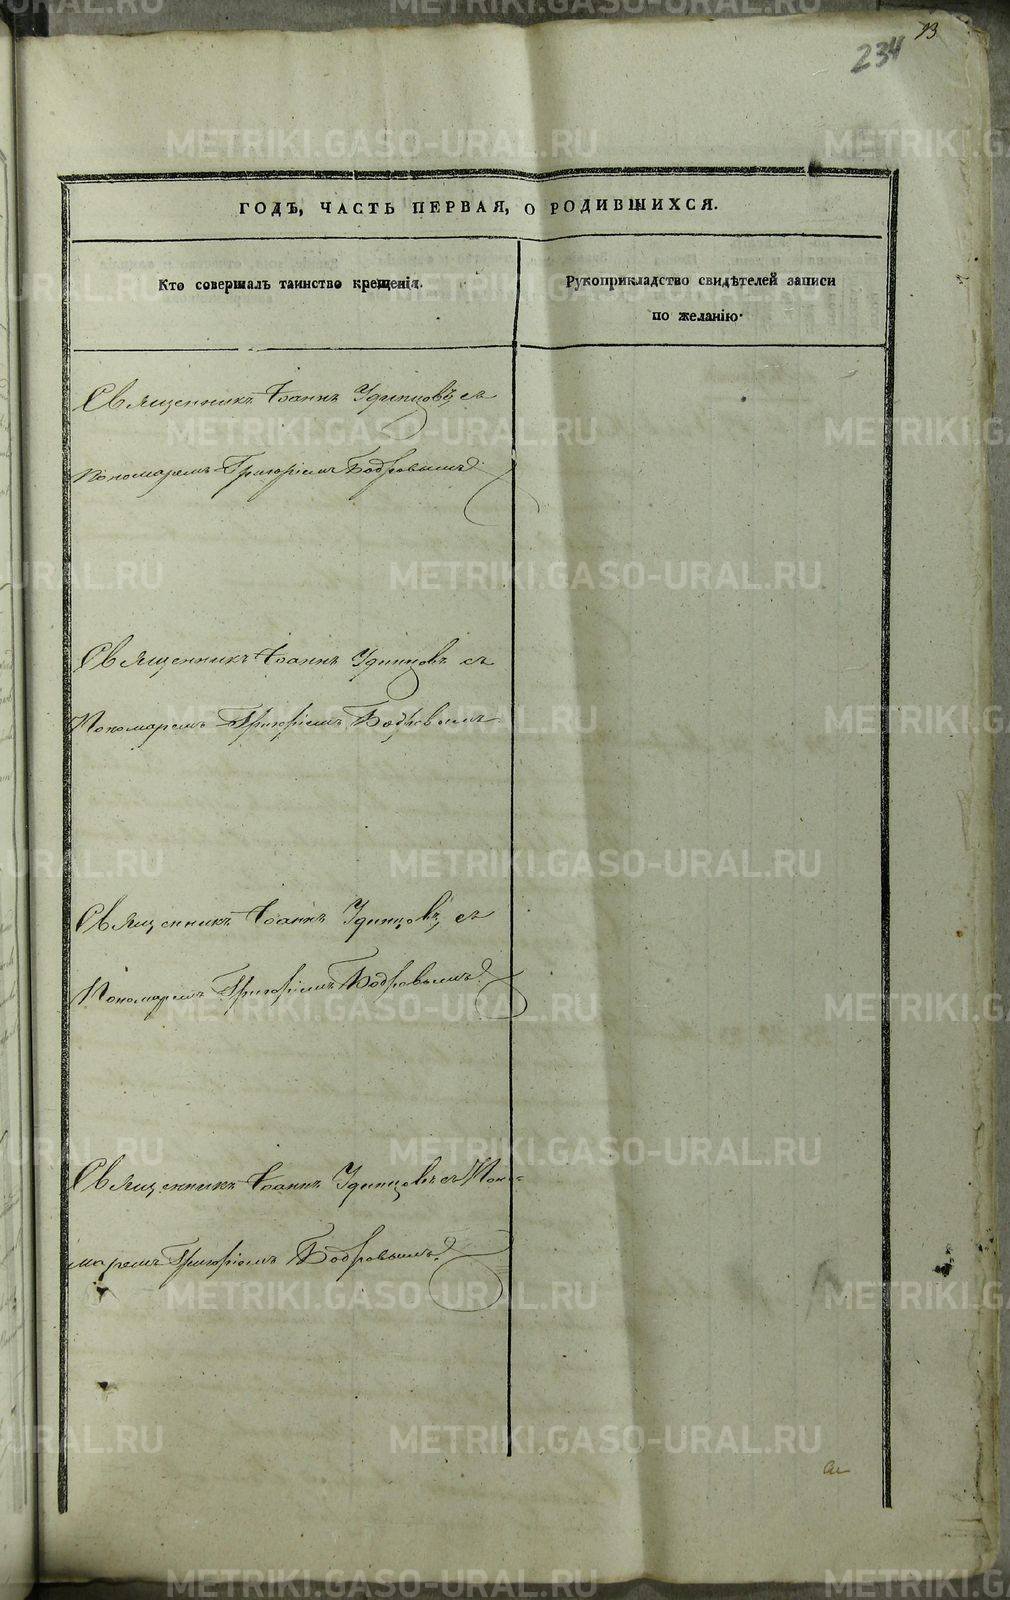 234
93
ГОДЪ, ЧАСТЬ ПЕРВАЯ, О РОДИВШИХСЯ.
Кто совершалъ таинство крещенія.
Рукоприкладство свидѣтелей записи
по желанію.
Священникъ Іоаннъ Удинцовъ, съ
Пономаремъ Григоріемъ Бобровымъ
Священникъ Іоаннъ Удинцовъ съ
Пономаремъ Григоріемъ Бобровымъ
Священникъ Іоаннъ Удинцовъ, съ
Пономаремъ Григоріемъ Бобровымъ
Священникъ Іоаннъ Удинцовъ съ Поно-
маремъ Григоріемъ Бобровымъ
METRIKI.GASO-URAL.RU